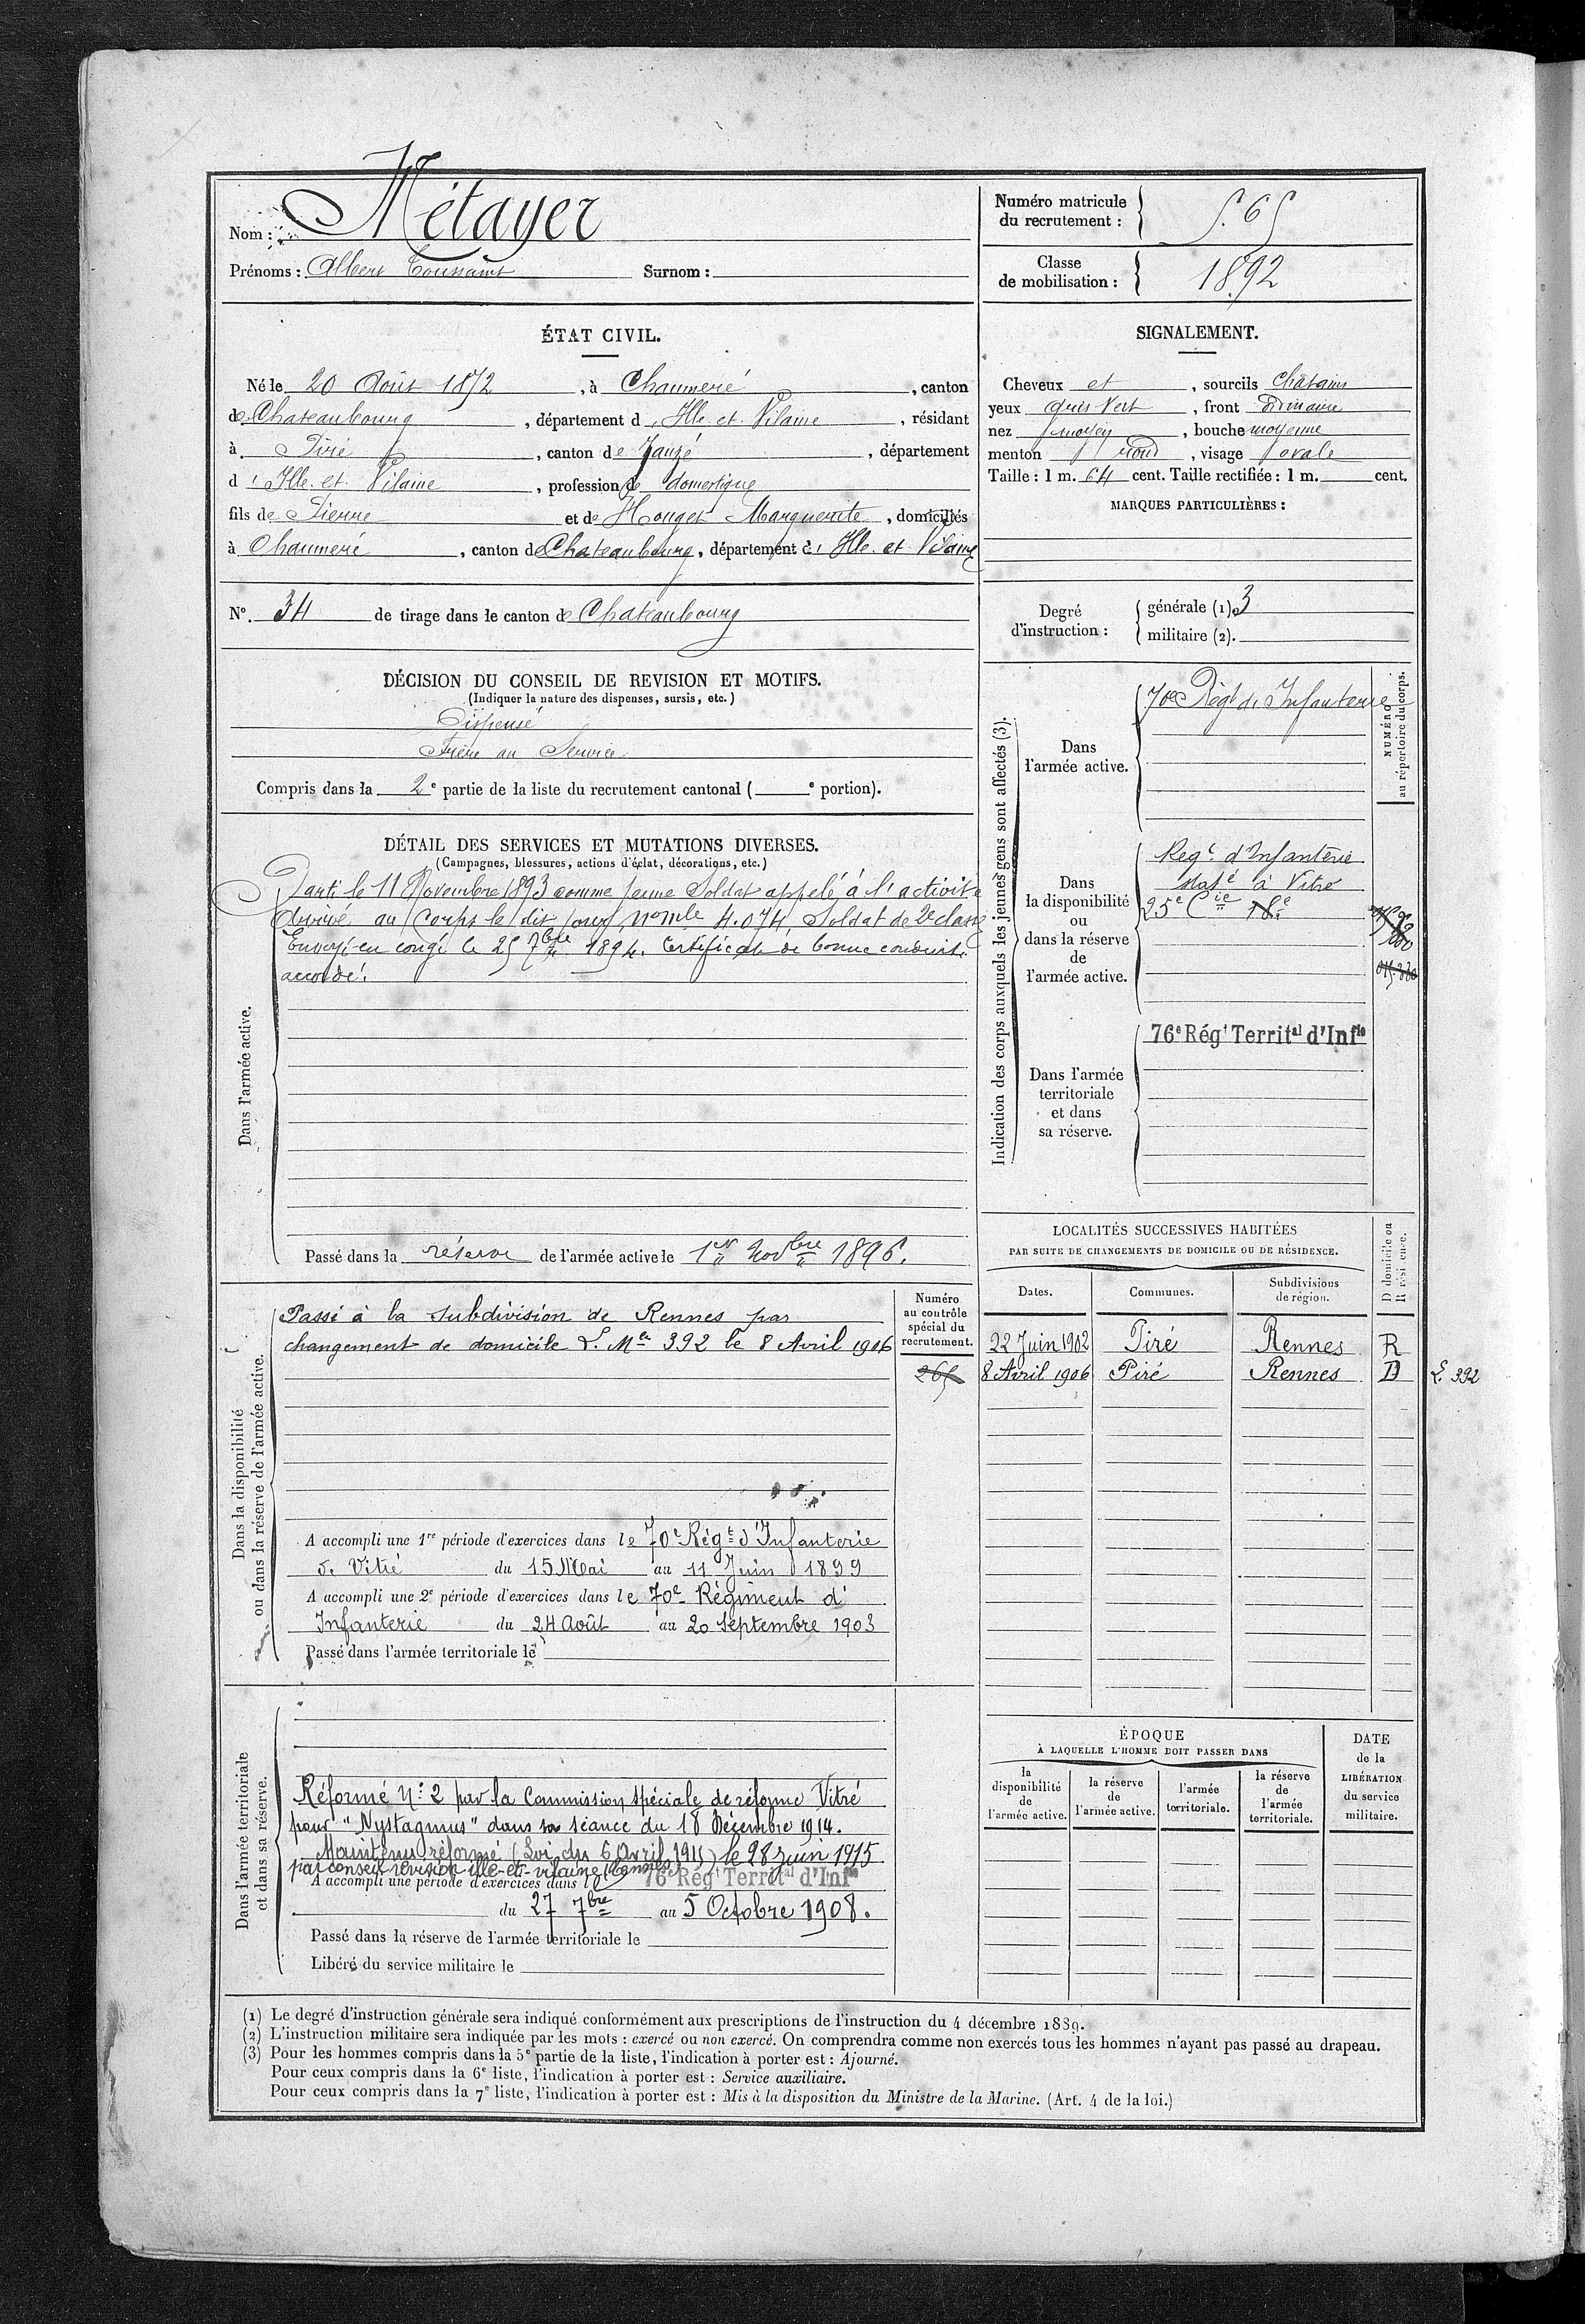 Nom : Métayer
Prénoms : Albert Toussaint Surnom :
Numéro matricule
du recrutement : 565
Classe
de mobilisation : 1892
ÉTAT CIVIL.
Né le 20 Août 1872, à Chaumeré, canton
de Chateaubourg, département d' Ille et Vilaine, résidant
à Piré, canton de Janzé, département
d' Ille et Vilaine, profession de domestique
fils de Pierre et de Houget Marguerite, domiciliés
à Chaumeré, canton de Chateaubourg, département d' Ille et Vilaine
N° 34 de tirage dans le canton de Chateaubourg
SIGNALEMENT.
Cheveux et, sourcils chatains
yeux gris vert, front ordinaire
nez moyen, bouche moyenne
menton rond, visage ovale
Taille : 1 m. 64 cent. Taille rectifiée : 1 m. cent.
MARQUES PARTICULIÈRES :
Degré
d'instruction :
générale (1). 3
militaire (2).
DÉCISION DU CONSEIL DE REVISION ET MOTIFS.
(Indiquer la nature des dispenses, sursis, etc.)
Dispensé
Frère au Service
Compris dans la 2e partie de la liste du recrutement cantonal ( e portion).
DÉTAIL DES SERVICES ET MUTATIONS DIVERSES.
(Campagnes, blessures, actions d'éclat, décorations, etc.)
Dans l'armée active.
Parti le 11 Novembre 1893 comme jeune Soldat appelé à l'activité
Arrivé au Corps le dit jour, n° mle 4.074 Soldat de 2e classe
Envoyé en congé le 25 7bre 1894. Certificat de bonne conduite
accordé.
Passé dans la réserve de l'armée active le 1er Novbre 1896.
Indication des corps auxquels les jeunes gens sont affectés (3).
Dans
l'armée active.
70e Régt d'Infanterie
NUMÉRO
au répertoire du corps.
Dans
la disponibilité
ou
dans la réserve
de
l'armée active.
Regt d'Infanterie
stat à Vitré
25e Cie 18e
Dans l'armée
territoriale
et dans
sa réserve.
76e Régt Territal d'Infie
LOCALITÉS SUCCESSIVES HABITÉES
PAR SUITE DE CHANGEMENTS DE DOMICILE OU DE RÉSIDENCE.
D domicile ou
R résidence.
Dates. Communes. Subdivisions
de région.
22 Juin 1902 Piré Rennes R
8 Avril 1906 Piré Rennes D L. 392
Dans la disponibilité
ou dans la réserve de l'armée active.
Numéro
au contrôle
spécial du
recrutement.
265
Passé à la subdivision de Rennes par
changement de domicile L. Mle 392 le 8 Avril 1906
A accompli une 1re période d'exercices dans le 70e Régt d'Infanterie
de Vitré du 15 Mai au 11 Juin 1899
A accompli une 2e période d'exercices dans le 70e Régiment d'
Infanterie du 24 Août au 20 Septembre 1903
Passé dans l'armée territoriale le
Dans l'armée territoriale
et dans sa réserve.
Réformé N° 2 par la Commission spéciale de réforme Vitré
pour "Nystagmus" dans sa séance du 18 Décembre 1914.
Maintenu réformé (Loi du 6 Avril 1915) le 28 juin 1915
par conseil révision Ille-et-Vilaine (Rennes)
A accompli une période d'exercices dans le 76e Régt Territal d'Infie
du 27 7bre au 5 Octobre 1908.
Passé dans la réserve de l'armée territoriale le
Libéré du service militaire le
ÉPOQUE
À LAQUELLE L'HOMME DOIT PASSER DANS
la
disponibilité
de
l'armée active.
la réserve
de
l'armée active.
l'armée
territoriale.
la réserve
de
l'armée
territoriale.
DATE
de la
LIBÉRATION
du service
militaire.
(1) Le degré d'instruction générale sera indiqué conformément aux prescriptions de l'instruction du 4 décembre 1889.
(2) L'instruction militaire sera indiquée par les mots : exercé ou non exercé. On comprendra comme non exercés tous les hommes n'ayant pas passé au drapeau.
(3) Pour les hommes compris dans la 5e partie de la liste, l'indication à porter est : Ajourné.
Pour ceux compris dans la 6e liste, l'indication à porter est : Service auxiliaire.
Pour ceux compris dans la 7e liste, l'indication à porter est : Mis à la disposition du Ministre de la Marine. (Art. 4 de la loi.)